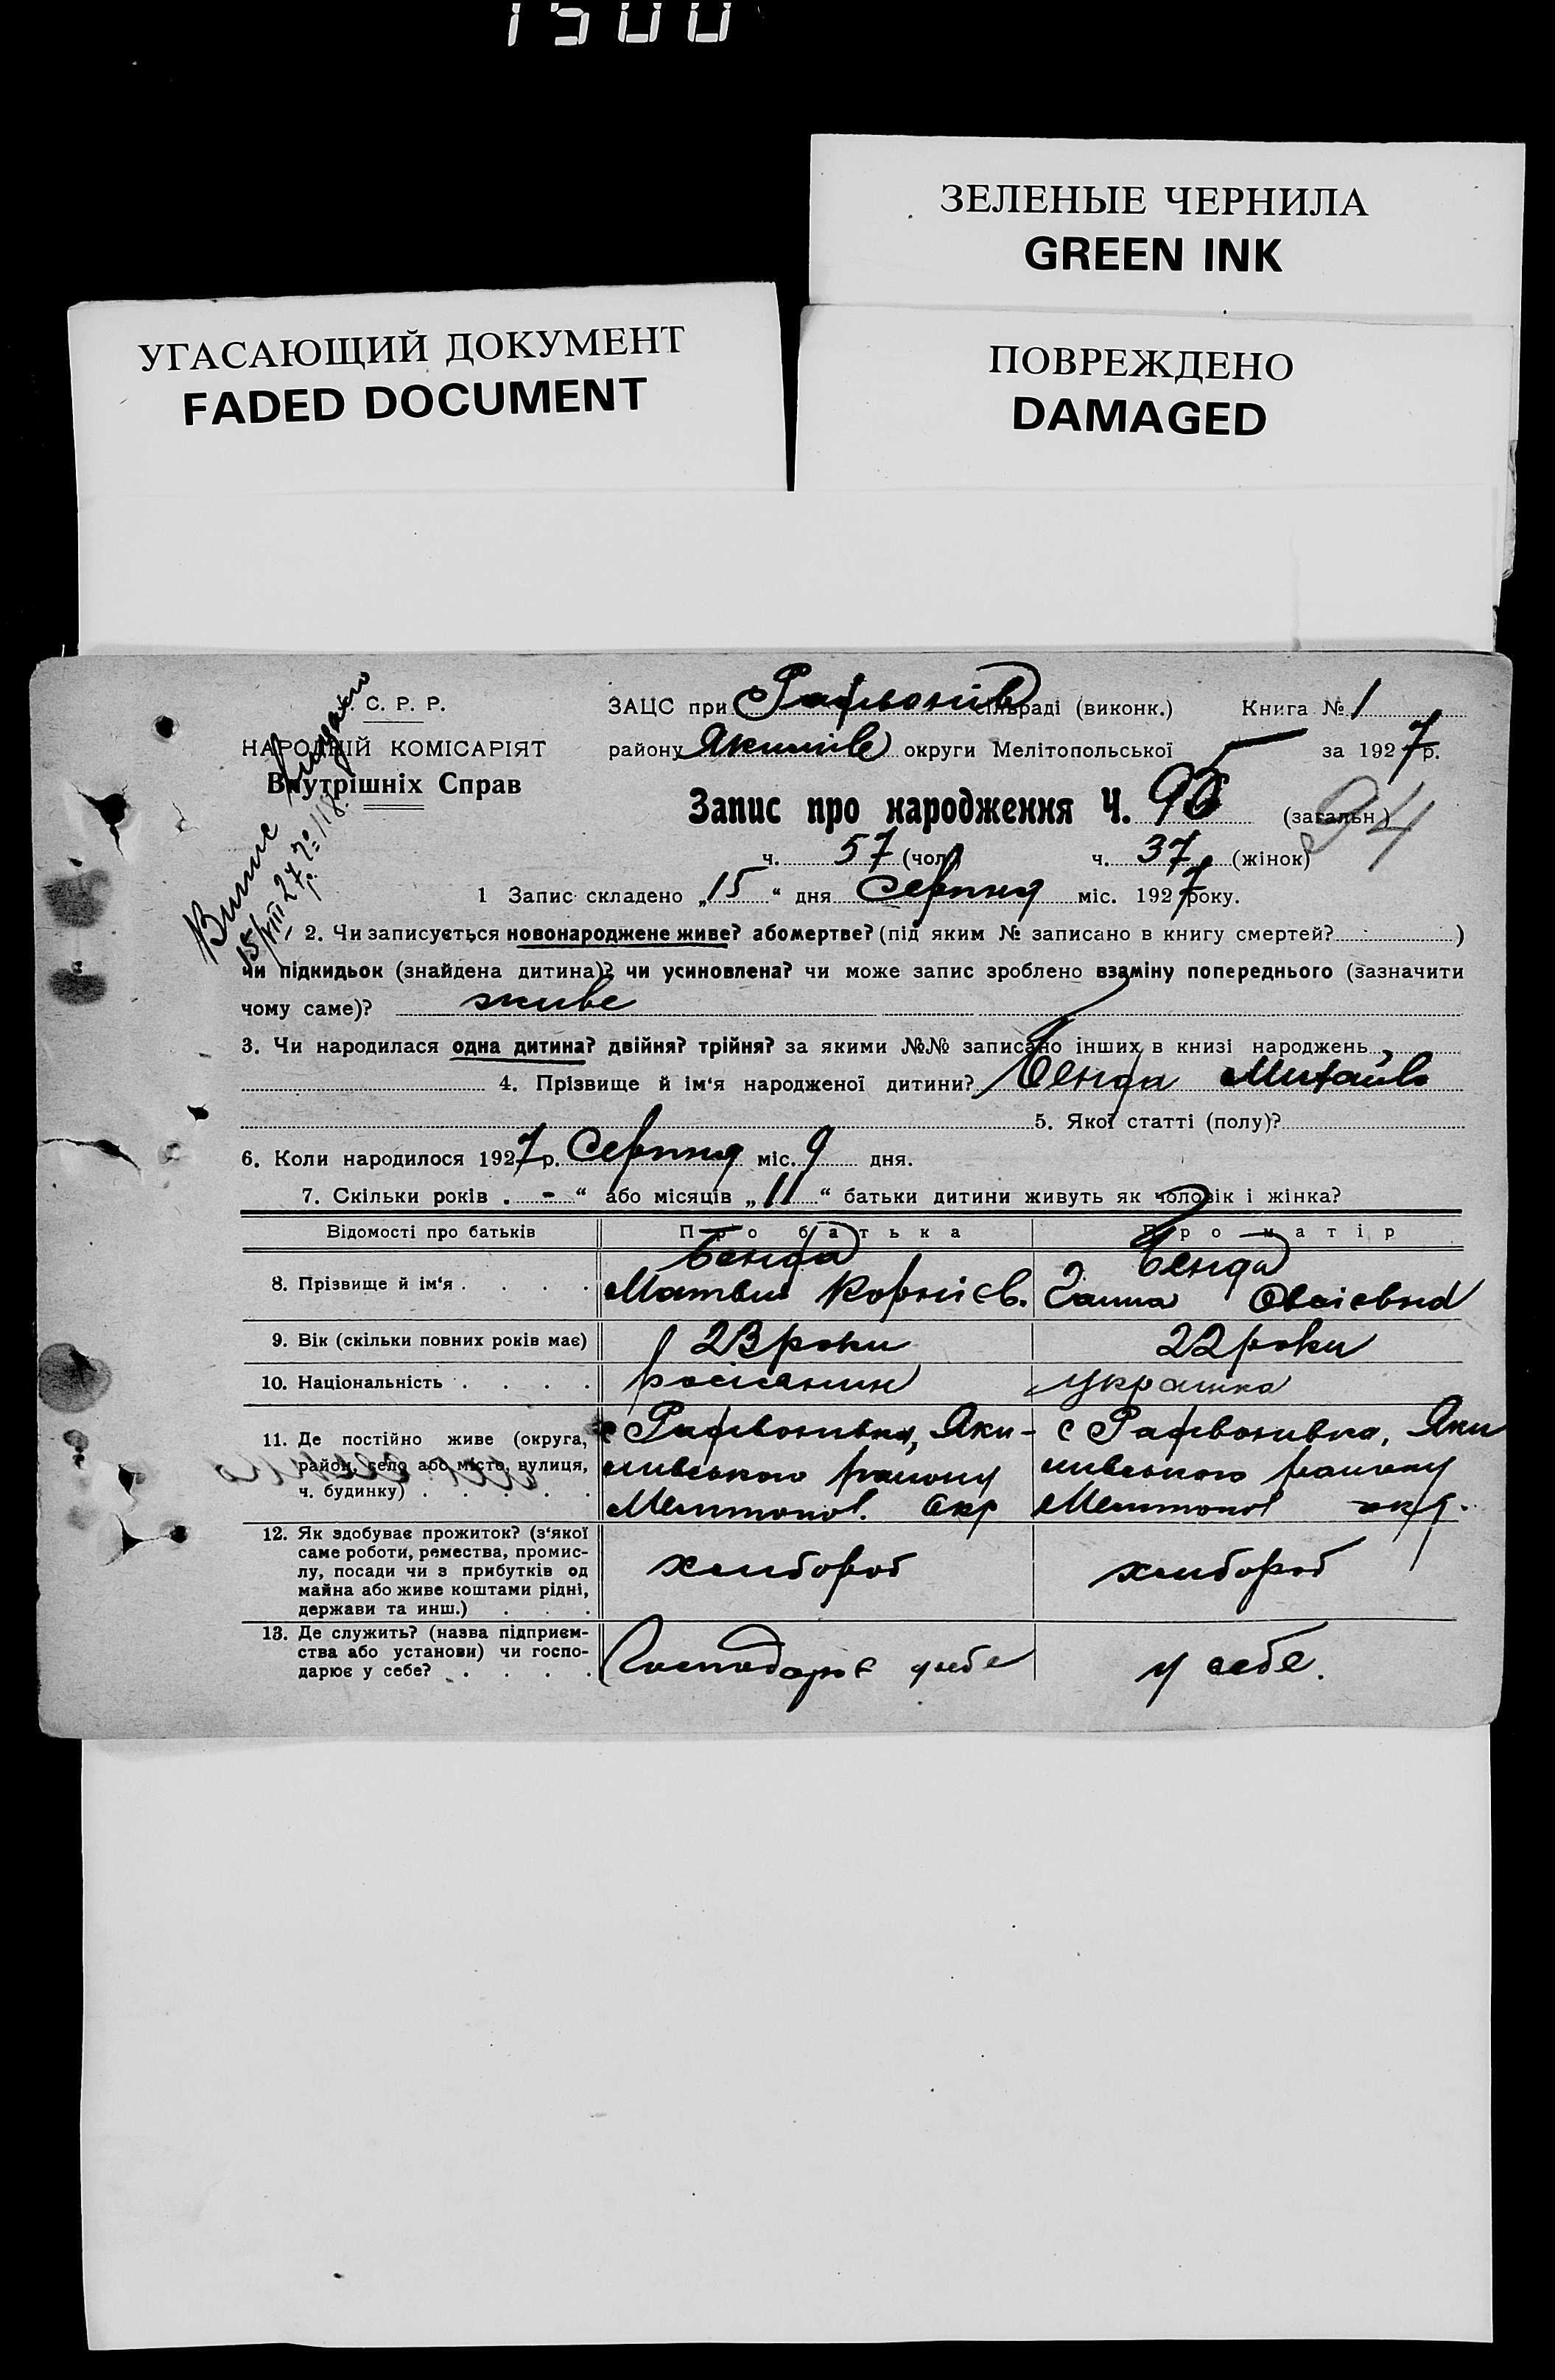 1500
ЗЕЛЕНЫЕ ЧЕРНИЛА
GREEN INK
УГАСАЮЩИЙ ДОКУМЕНТ
FADED DOCUMENT
ПОВРЕЖДЕНО
DAMAGED
С. Р. Р.
НАРОДНІЙ КОМІСАРІЯТ
Внутрішніх Справ
Випис видано
15/VIII 27 р. № 118
ЗАЦС при Рафвонів сільраді (виконк.) Книга № 1
району Якимів округи Мелітопольської за 1927 р.
Запис про народження Ч. (загальн.) 94
ч. 57 (чол.) ч. 37 (жінок)
1 Запис складено „15“ дня Серпня міс. 1927 року.
2. Чи записується новонароджене живе? або мертве? (під яким № записано в книгу смертей? )
чи підкидьок (знайдена дитина)? чи усиновлена? чи може запис зроблено взаміну попереднього (зазначити
чому саме)? живе
3. Чи народилася одна дитина? двійня? трійня? за якими №№ записано інших в книзі народжень
4. Прізвище й ім‘я народженої дитини? Бенда Михайло
5. Якої статті (полу)?
6. Коли народилося 1927 р. Серпня міс. 9 дня.
7. Скільки років „ - “ або місяців „11“ батьки дитини живуть як чоловік і жінка?
Відомості про батьків Про батька Про матір
8. Прізвище й ім‘я . . . . Бенда Матвій Корнієв. Бенда Ганна
9. Вік (скільки повних років має) 23 роки 22 роки
10. Національність . . . . росіянин українка
11. Де постійно живе (округа, с Рафвонивка, Яки- с Рафвонивка, Яки
район, село або місто, вулиця, мивського району мивського району
ч. будинку) . . . . . Мелитопол. Окр Мелитопол окр.
12. Як здобуває прожиток? (з‘якої
саме роботи, ремества, промис-
лу, посади чи з прибутків од хлибороб хлибороб
майна або живе коштами рідні,
держави та инш.) . . .
13. Де служить? (назва підприєм-
ства або установи) чи госпо- Господарює у себе у себе.
дарює у себе? . . . .